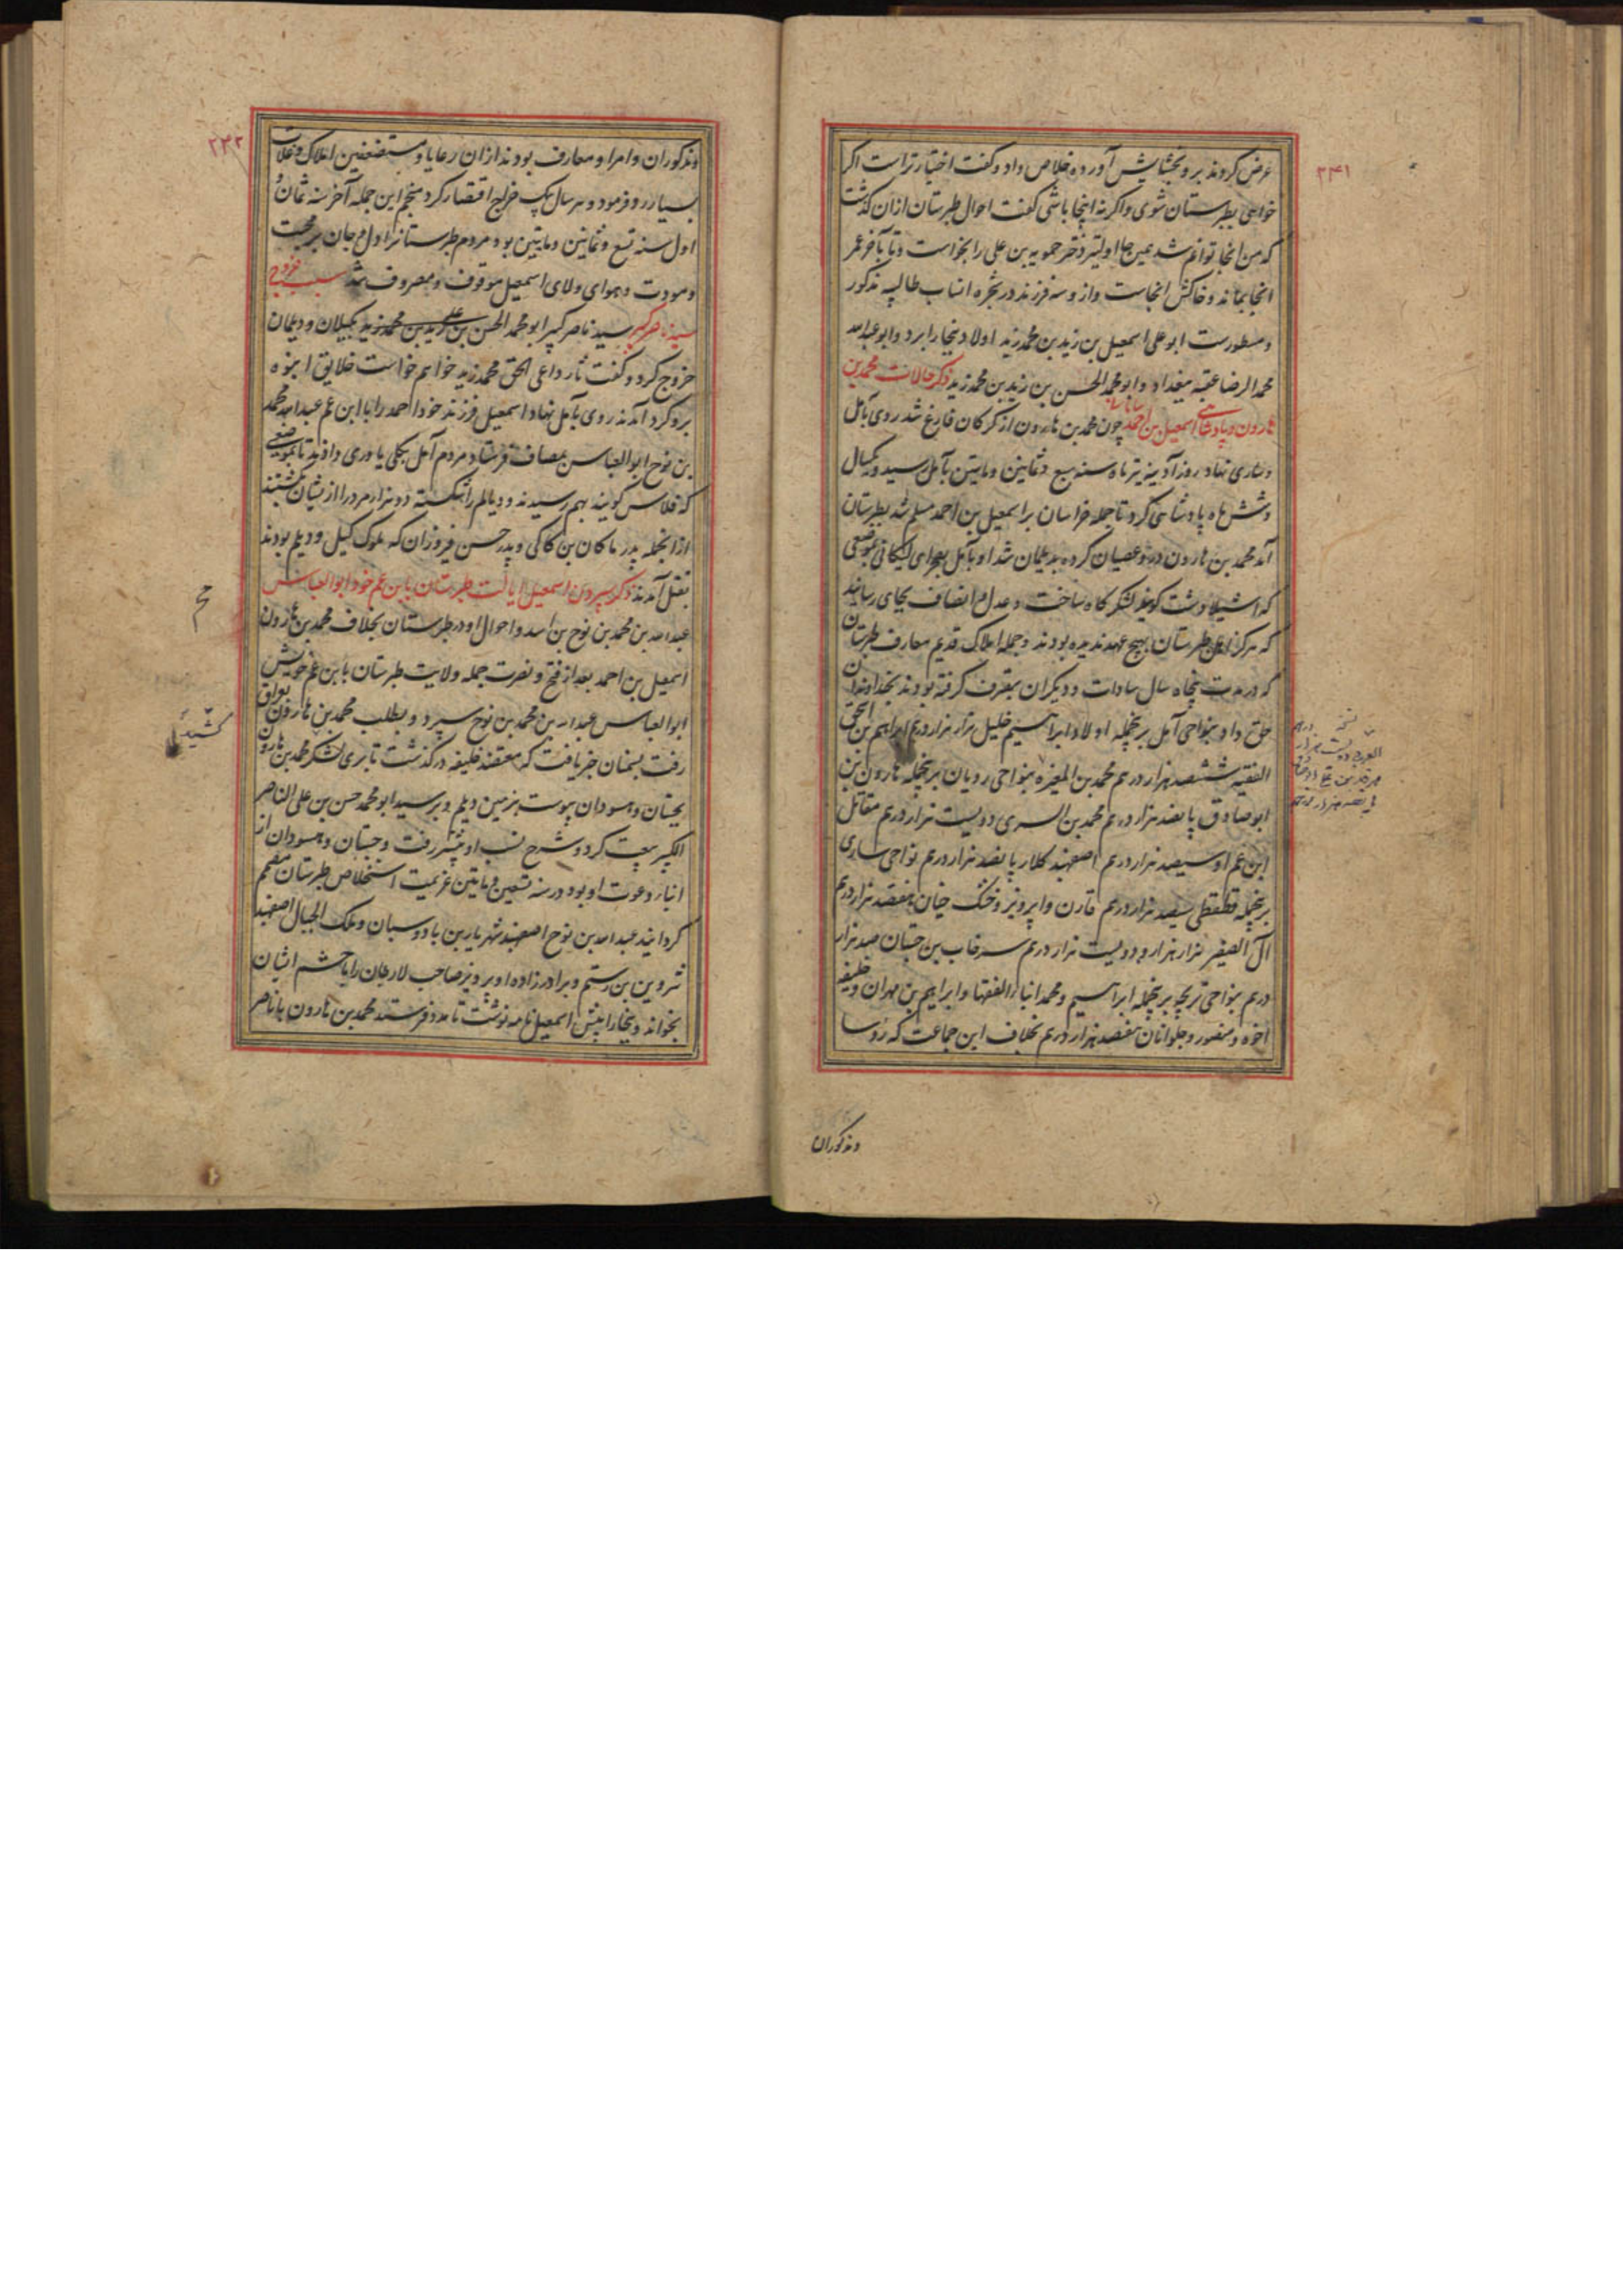 ۲۴۱
عرض کردند برو بخشایش آورده خلاص داد و گفت اختیار تراست اگر
خواهی بطبرستان شوی و اگر نه اینجا باشی گفت احوال طبرستان ازان گذشت
که من آنجا توانم شد همین جا اولیتر دختر حمویه بن علی را بخواست و تا بآخر عمر
آنجا بماند و خاکش آنجاست و ازو سه فرزند در شجره انساب طالبیه مذکور
و مسطورست ابو علی اسمعیل بن زید بن محمد زید اولاد ببخارا برد و ابو عبدالله
محمد الرضا عقبه ببغداد و ابو محمد الحسن بن زید بن محمد زید ذکر حالات محمد بن
هارون و پادشاهی اسمعیل بن احمد سامانی چون محمد بن هارون از گرگان فارغ شد روی بآمل
و ساری نهاد روز آدینه تیر ماه سنه سبع و ثمانین و مایتین بآمل رسید و یکسال
و شش ماه پادشاهی کرد تا جمله خراسان بر اسمعیل بن احمد مسلم شد بطبرستان
آمد محمد بن هارون درو عصیان کرده بدیلمان شد او بآمل بصحرای لیکانی بموضعی
که اشیلادشت گویند لشکرگاه ساخت و عدل و انصاف بجای رسانید
که هرگز اهل طبرستان بهیچ عهد ندیده بودند و جمله املاک قدیم معارف طبرستان
که در مدت پنجاه سال سادات و دیگران بتصرف گرفته بودند بخداوندان
حق داد و بنواحی آمل برنجمله اولاد ابراهیم خلیل هزار هزار درم ابراهیم بن اسحق
الفقیه ششصد هزار درم محمد بن المغیره بنواحی رویان برنجمله هارون بن
ابو صادق پانصد هزار درم محمد بن السری دویست هزار درم مقاتل
ابن عم او سیصد هزار درم اصفهبد کلار پانصد هزار درم نواحی ساری
برنجمله قطقطی سیصد هزار درم قارن و ابرویز و خنک جیان هفصد هزار درم
آل الصغیر هزار هزار و دویست هزار درم سرخاب بن جستان صد هزار
درم بنواحی تریجه برنجمله ابراهیم و محمد ابناء الفقها و ابراهیم بن مهران و خلیفه
اخوه و منصور و جلوانان هفصد هزار درم بخلاف این جماعت که رؤسا
و مذکوران
۲۴۲
و مذکوران و امرا و معارف بودند ازان رعایا و مستضعفین املاک و غلات
بسیار رد فرمود و هر سال بیک خراج اقتصار کرد منجم این جمله آخر سنه ثمان و
اول سنه تسع و ثمانین و مایتین بود مردم طبرستانرا دل و جان بر محبت
و مودت و هوای ولای اسمعیل موقوف و مصروف شد سبب خروج
سید ناصر کبیر سید ناصر کبیر ابو محمد الحسن بن علی زید بن محمد زید بگیلان و دیلمان
خروج کرد و گفت ثار داعی الحق محمد زید خواهم خواست خلایق انبوه
برو گرد آمدند روی بآمل نهاد اسمعیل فرزند خود احمد را با ابن عم عبدالله محمد
بن نوح ابو العباس بمصاف فرستاد مردم آمل بکلی یاوری دادند تا بموضعی
که فلاس گویند بهم رسیدند و دیالم را شکسته دو هزار مرد را ازیشان بکشتند
از انجمله پدر ماکان بن کاکی و پدر حسن فیروزان که ملوک گیل و دیلم بودند
بقتل آمدند ذکر سپردن اسمعیل ایالت طبرستان بابن عم خود ابو العباس
عبدالله بن محمد بن نوح بن اسد و احوال او در طبرستان بخلاف محمد بن هارون
اسمعیل بن احمد بعد از فتح و نصرت جمله ولایت طبرستان بابن عم خویش
ابو العباس عبدالله بن محمد بن نوح سپرد و بطلب محمد بن هارون بعراق
رفت بسمنان خبر یافت که معتضد خلیفه درگذشت تا بری لشکر محمد بن هارون
بجستان و هسودان پیوست بزمین دیلم و بر سید ابو محمد حسن بن علی الناصر
الکبیر بیعت کرد و شرح نسب او پیشتر رفت و جستان و هسودان از
انباء دعوت او بود در سنه تسعین و مایتین عزیمت استخلاص طبرستان مصمم
گردانید عبدالله بن نوح اصفهبد شهریار بن بادوسبان و ملک الجبال اصفهبد
شروین بن رستم و برادرزاده او پرویز صاحب لارجان را با حشم ایشان
بخواند و ببخارا پیش اسمعیل نامه نوشت تا مدد فرستد محمد بن هارون با ناصر